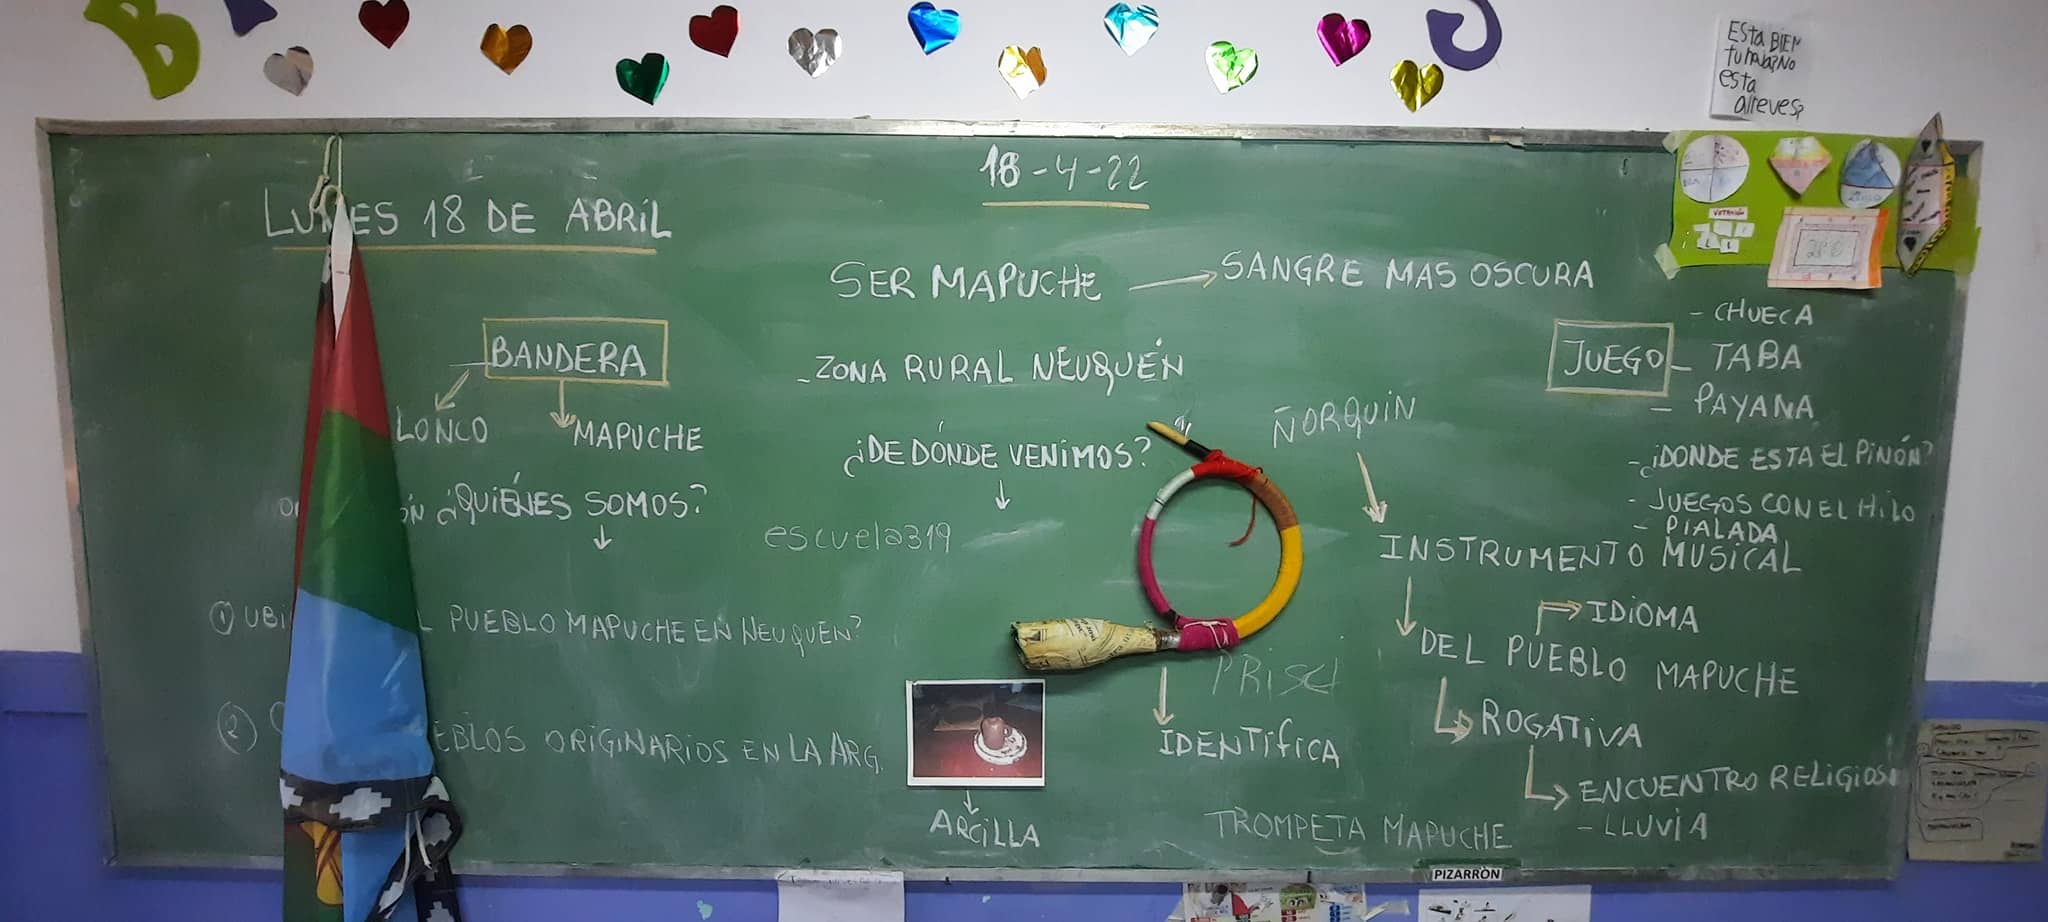 Esta BIEN
tu
esta
alreves?
18-4-22
LUNES 18 DE ABRIL
SER MAPUCHE → SANGRE MAS OSCURA
BANDERA
LONCO
MAPUCHE
- ZONA RURAL NEUQUÉN
¿DE DÓNDE VENIMOS?
¿QUIÉNES SOMOS?
escuela319
① UBI
L PUEBLO MAPUCHE EN NEUQUEN?
②
EBLOS ORIGINARIOS EN LA ARG.
ARCILLA
PRISCI
IDENTIFICA
TROMPETA MAPUCHE
ÑORQUIN
INSTRUMENTO MUSICAL
IDIOMA
DEL PUEBLO MAPUCHE
ROGATIVA
ENCUENTRO RELIGIOSO
- LLUVIA
VOTACIÓN
JUEGO
- CHUECA
- TABA
- PAYANA
- ¿DONDE ESTA EL PIÑÓN?
- JUEGOS CON EL HILO
- PIALADA
PIZARRÒN